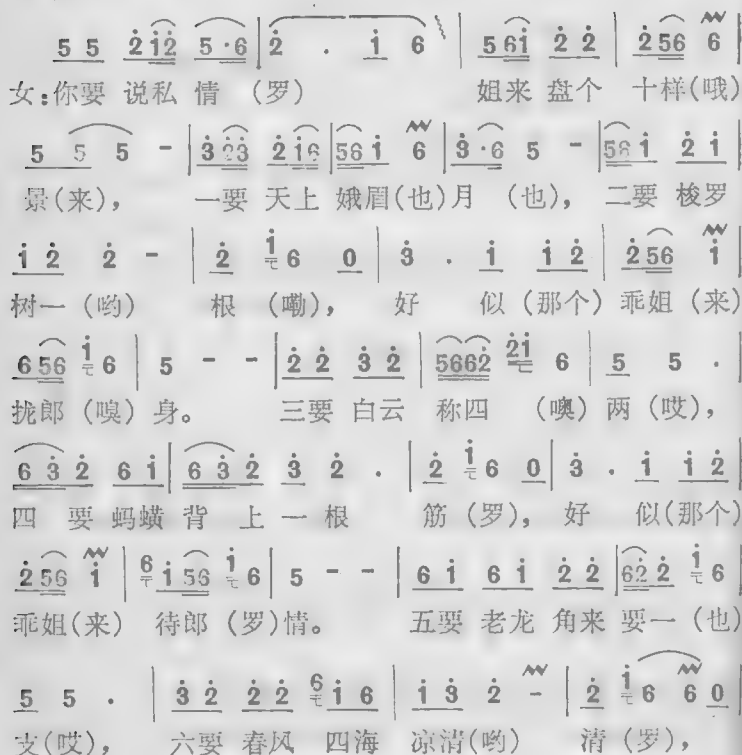 5 5 2̇ i̇2̇ 5·6 | 2̇ . i̇ 6 | 5 6i̇ 2̇ 2̇ | 2̇ 56 6 |
女:你要 说私 情 (罗) 姐来 盘个 十样(哦)
5 5 5 - | 3̇ 2̇3̇ 2̇ i̇6 | 56 i̇ 6 | 3̇ ·6 5 - | 56 i̇ 2̇ i̇ |
景(来), 一要 天上 娥眉(也)月 (也), 二要 梭罗
i̇ 2̇ 2̇ - | 2̇ i̇ 6 0 | 3̇ . i̇ i̇ 2̇ | 2̇ 56 i̇ |
树一 (哟) 根 (嘞), 好 似 (那个) 乖姐 (来)
6 56 i̇ 6 | 5 - - | 2̇ 2̇ 3̇ 2̇ | 5662̇ 2̇i̇ 6 | 5 5 . |
拢郎 (嗅) 身。 三要 白云 称四 (噢) 两 (哎),
6 3̇ 2̇ 6 i̇ | 6 3̇ 2̇ 3̇ 2̇ . | 2̇ i̇ 6 0 | 3̇ . i̇ i̇ 2̇ |
四 要 蚂蟥 背 上 一 根 筋 (罗), 好 似(那个)
2̇ 56 i̇ | 6 i̇ 56 i̇ 6 | 5 - - | 6 i̇ 6 i̇ 2̇ 2̇ | 62̇ 2̇ i̇ 6 |
乖姐(来) 待郎 (罗)情。 五要 老龙 角来 要一 (也)
5 5 . | 3̇ 2̇ 2̇ 2̇ 6 i̇ 6 | i̇ 3̇ 2̇ - | 2̇ i̇ 6 6 0 |
支(哎), 六要 春风 四海 凉清(哟) 清 (罗),